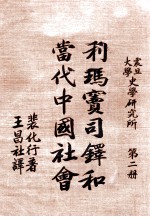 震旦
大學
史學研究所
第二册
利瑪竇司鐸和
當代中國社會
裴化行著
王昌社譯